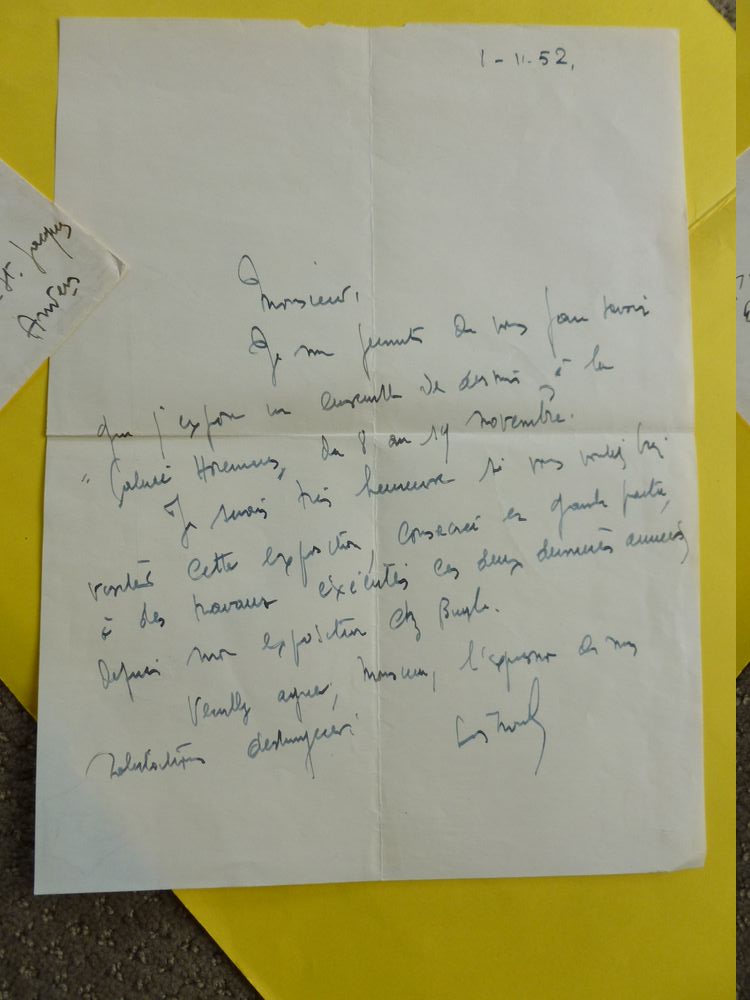 1-11-52,
Monsieur,
Je me permets de vous faire savoir
que j'expose un ensemble de dessins à la
"Galerie Horemans, du 8 au 19 novembre.
Je serais très heureuse si vous vouliez
visiter cette exposition, consacrée en grande partie,
à des travaux exécutés ces deux dernières années,
depuis mon exposition chez
Veuillez agréer, Monsieur, l'expression de mes
salutations
St. Jacques
Anvers